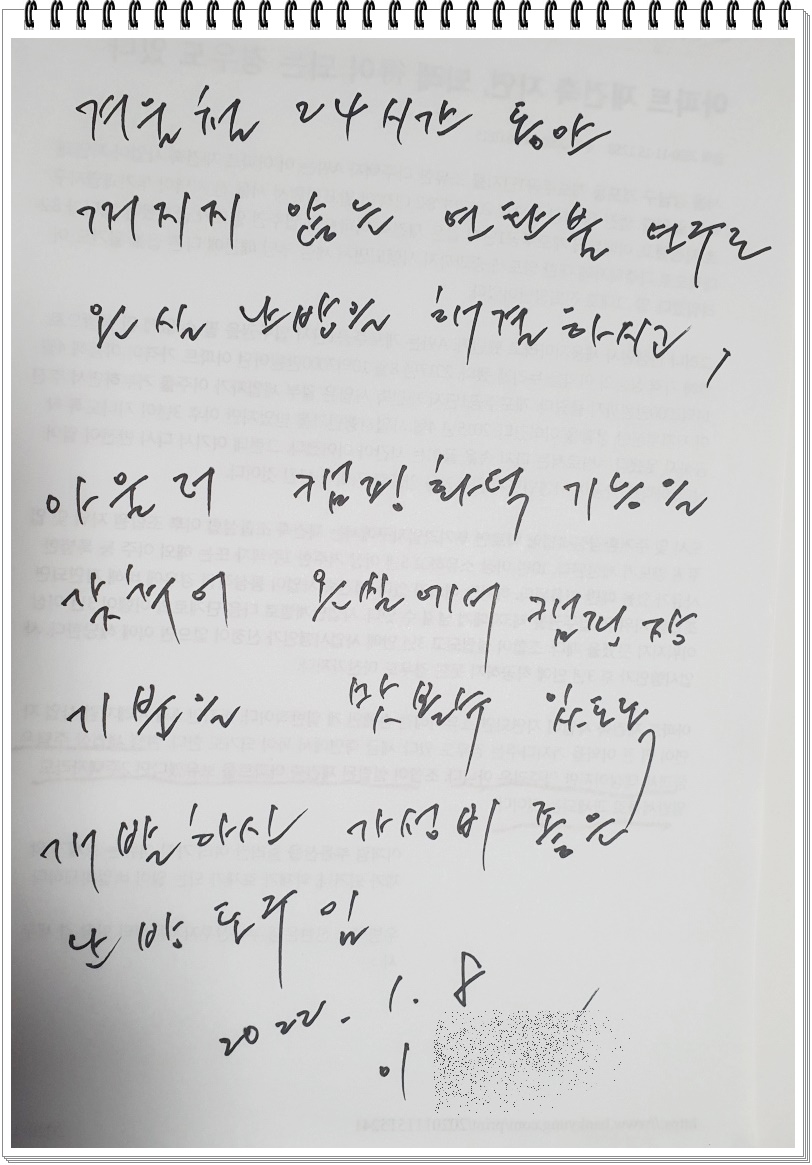 겨울철 24시간 동안
꺼지지 않는 연탄불 연구로
온실 난방을 해결하시고,
아울러 캠핑 화덕 기능을
갖추어 온실에서 캠핑장
기분을 맛볼수 있도록
개발하신 가성비 좋은
난방 도구임
2022. 1. 8
이